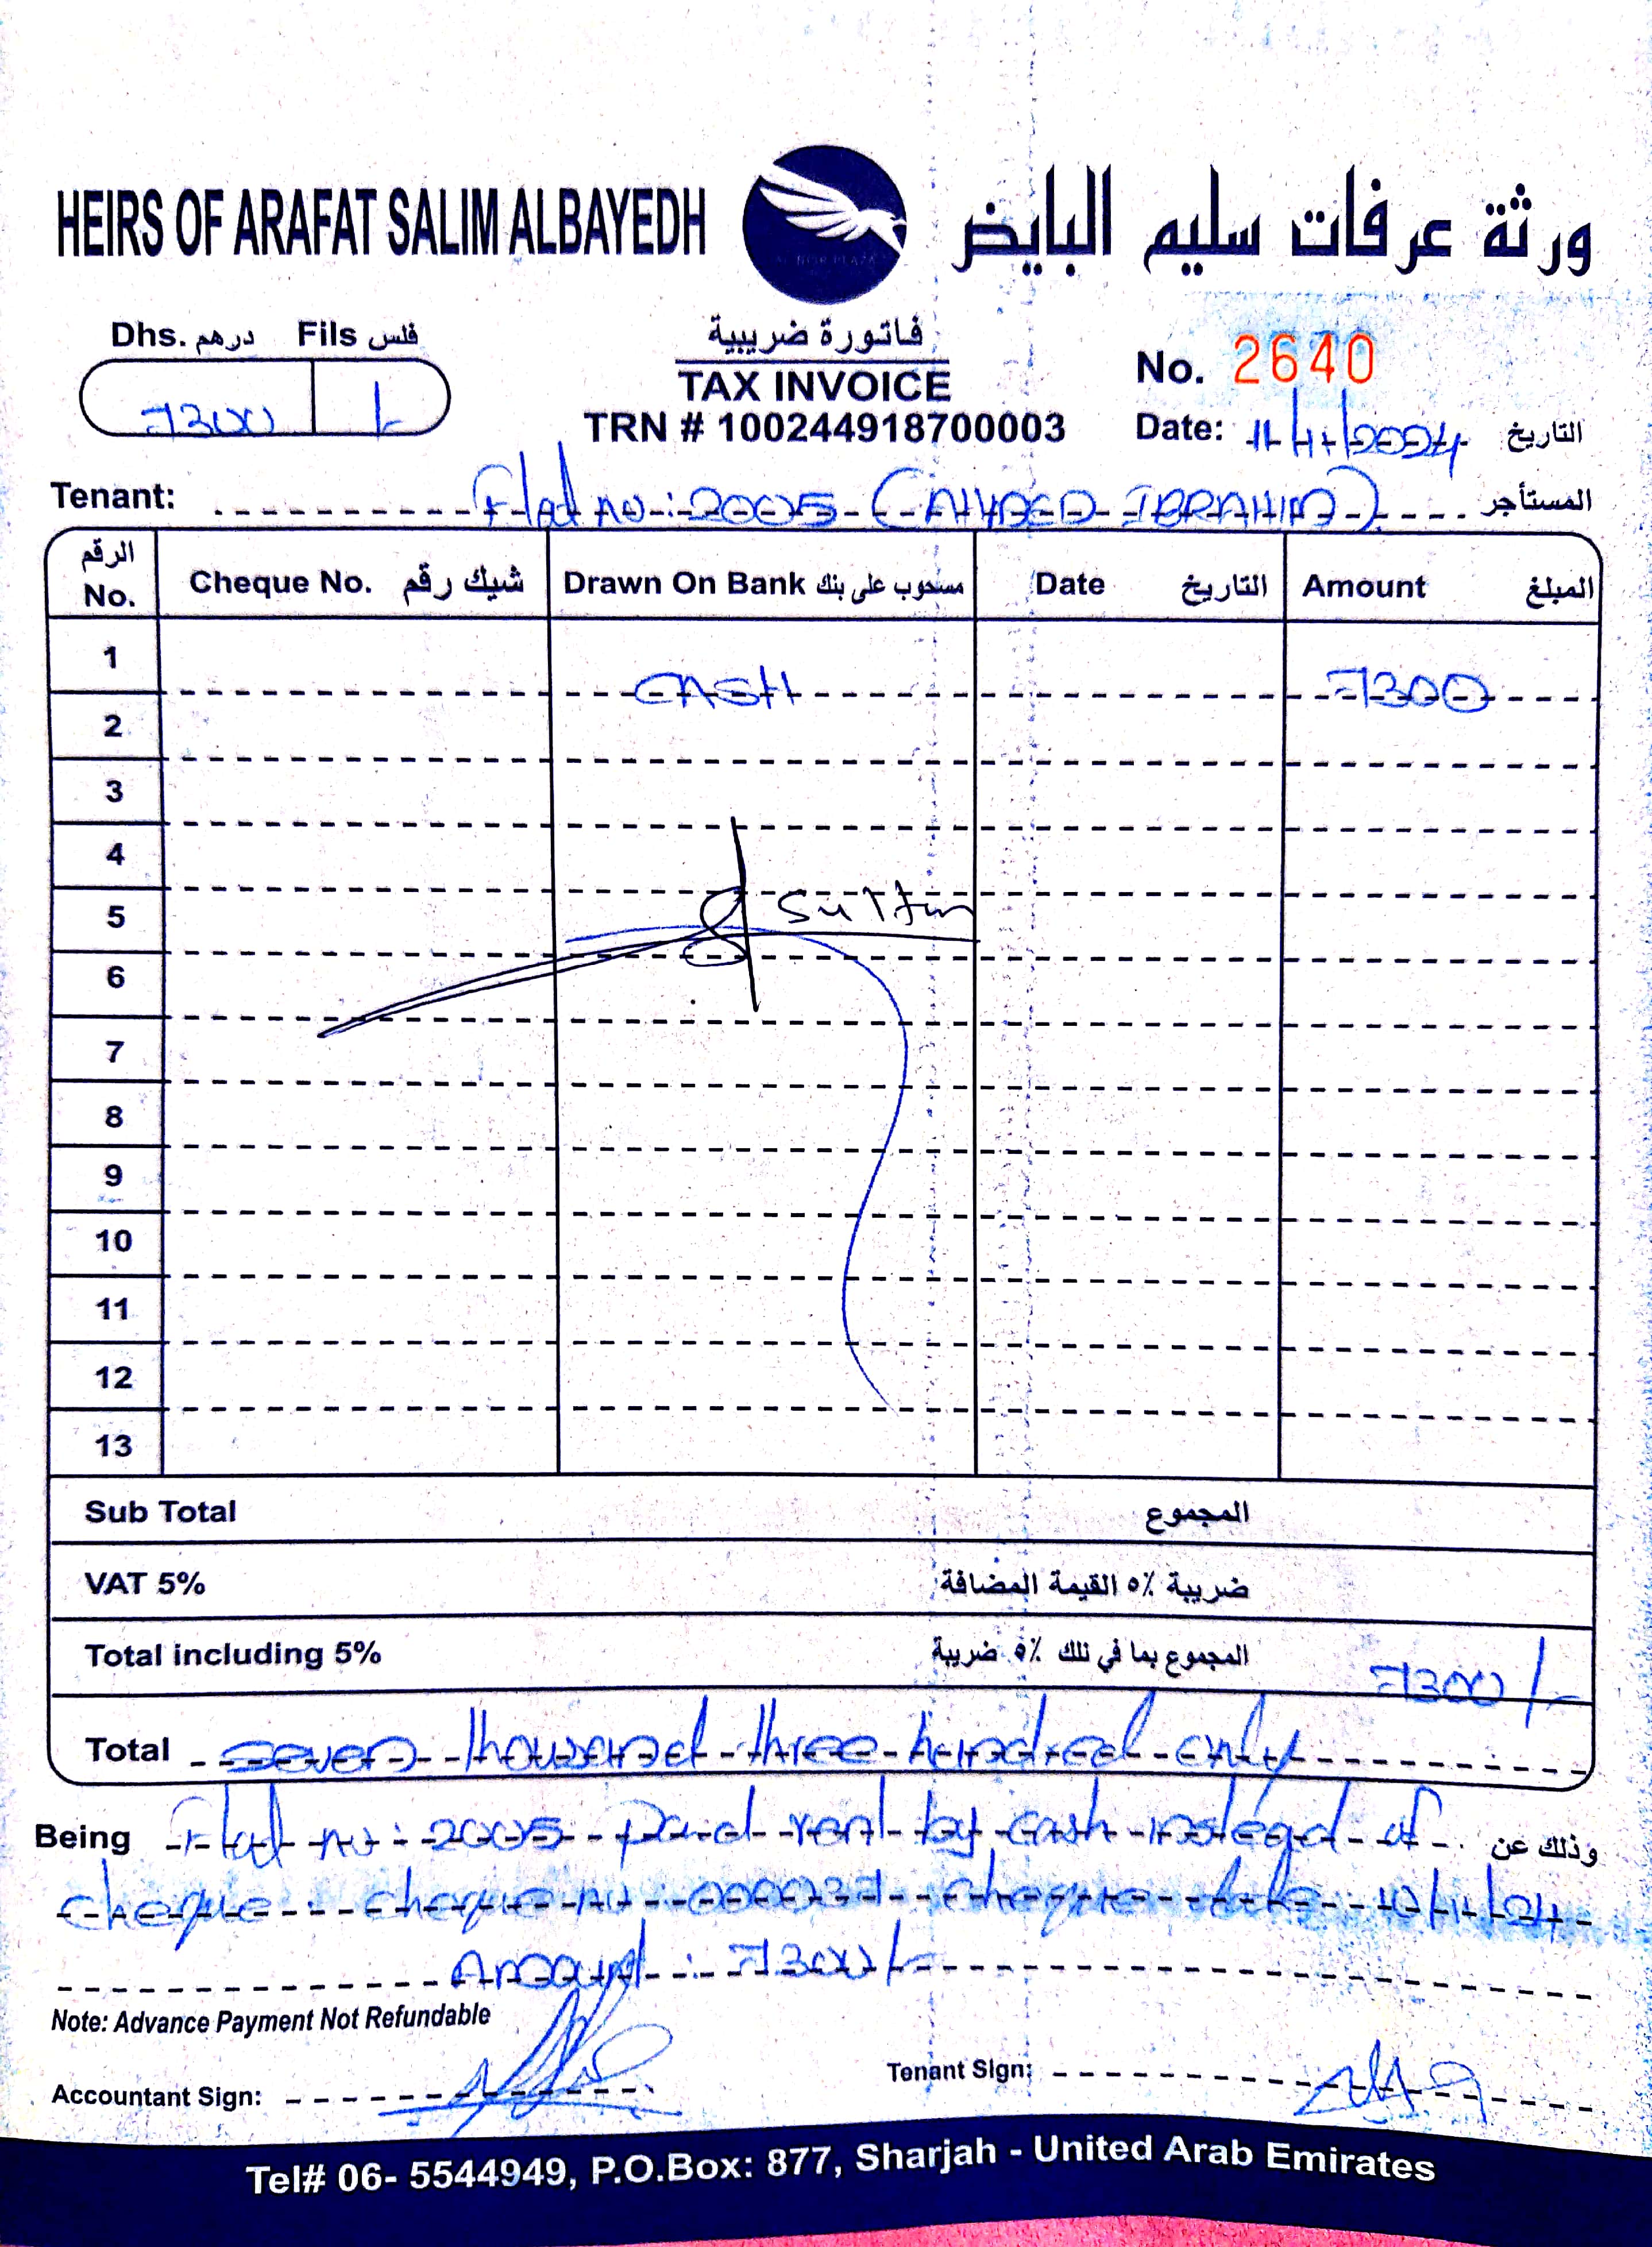 HEIRS OF ARAFAT SALIM ALBAYEDH ورثة عرفات سليم البايض
Dhs. درهم Fils فلس
7300 /-
فاتورة ضريبية
TAX INVOICE
TRN # 100244918700003
No. 2640
Date: 11/11/2024 التاريخ
Tenant: Flat no: 2005 (AHMED IBRAHIM) المستأجر
الرقم No. Cheque No. شيك رقم Drawn On Bank مسحوب على بنك Date التاريخ Amount المبلغ
1 CASH 7300
2
3
4
5 Sultan
6
7
8
9
10
11
12
13
Sub Total المجموع
VAT 5% ضريبة ٥٪ القيمة المضافة
Total including 5% المجموع بما في تلك ٥٪ ضريبة 7300/-
Total seven thousand three hundred only
Being Flat no: 2005 paid rent by cash instead of وذلك عن
cheque. cheque no: 000037 cheque date 10/11/24
Amount: 7300/-
Note: Advance Payment Not Refundable
Accountant Sign:
Tenant Sign:
Tel# 06- 5544949, P.O.Box: 877, Sharjah - United Arab Emirates